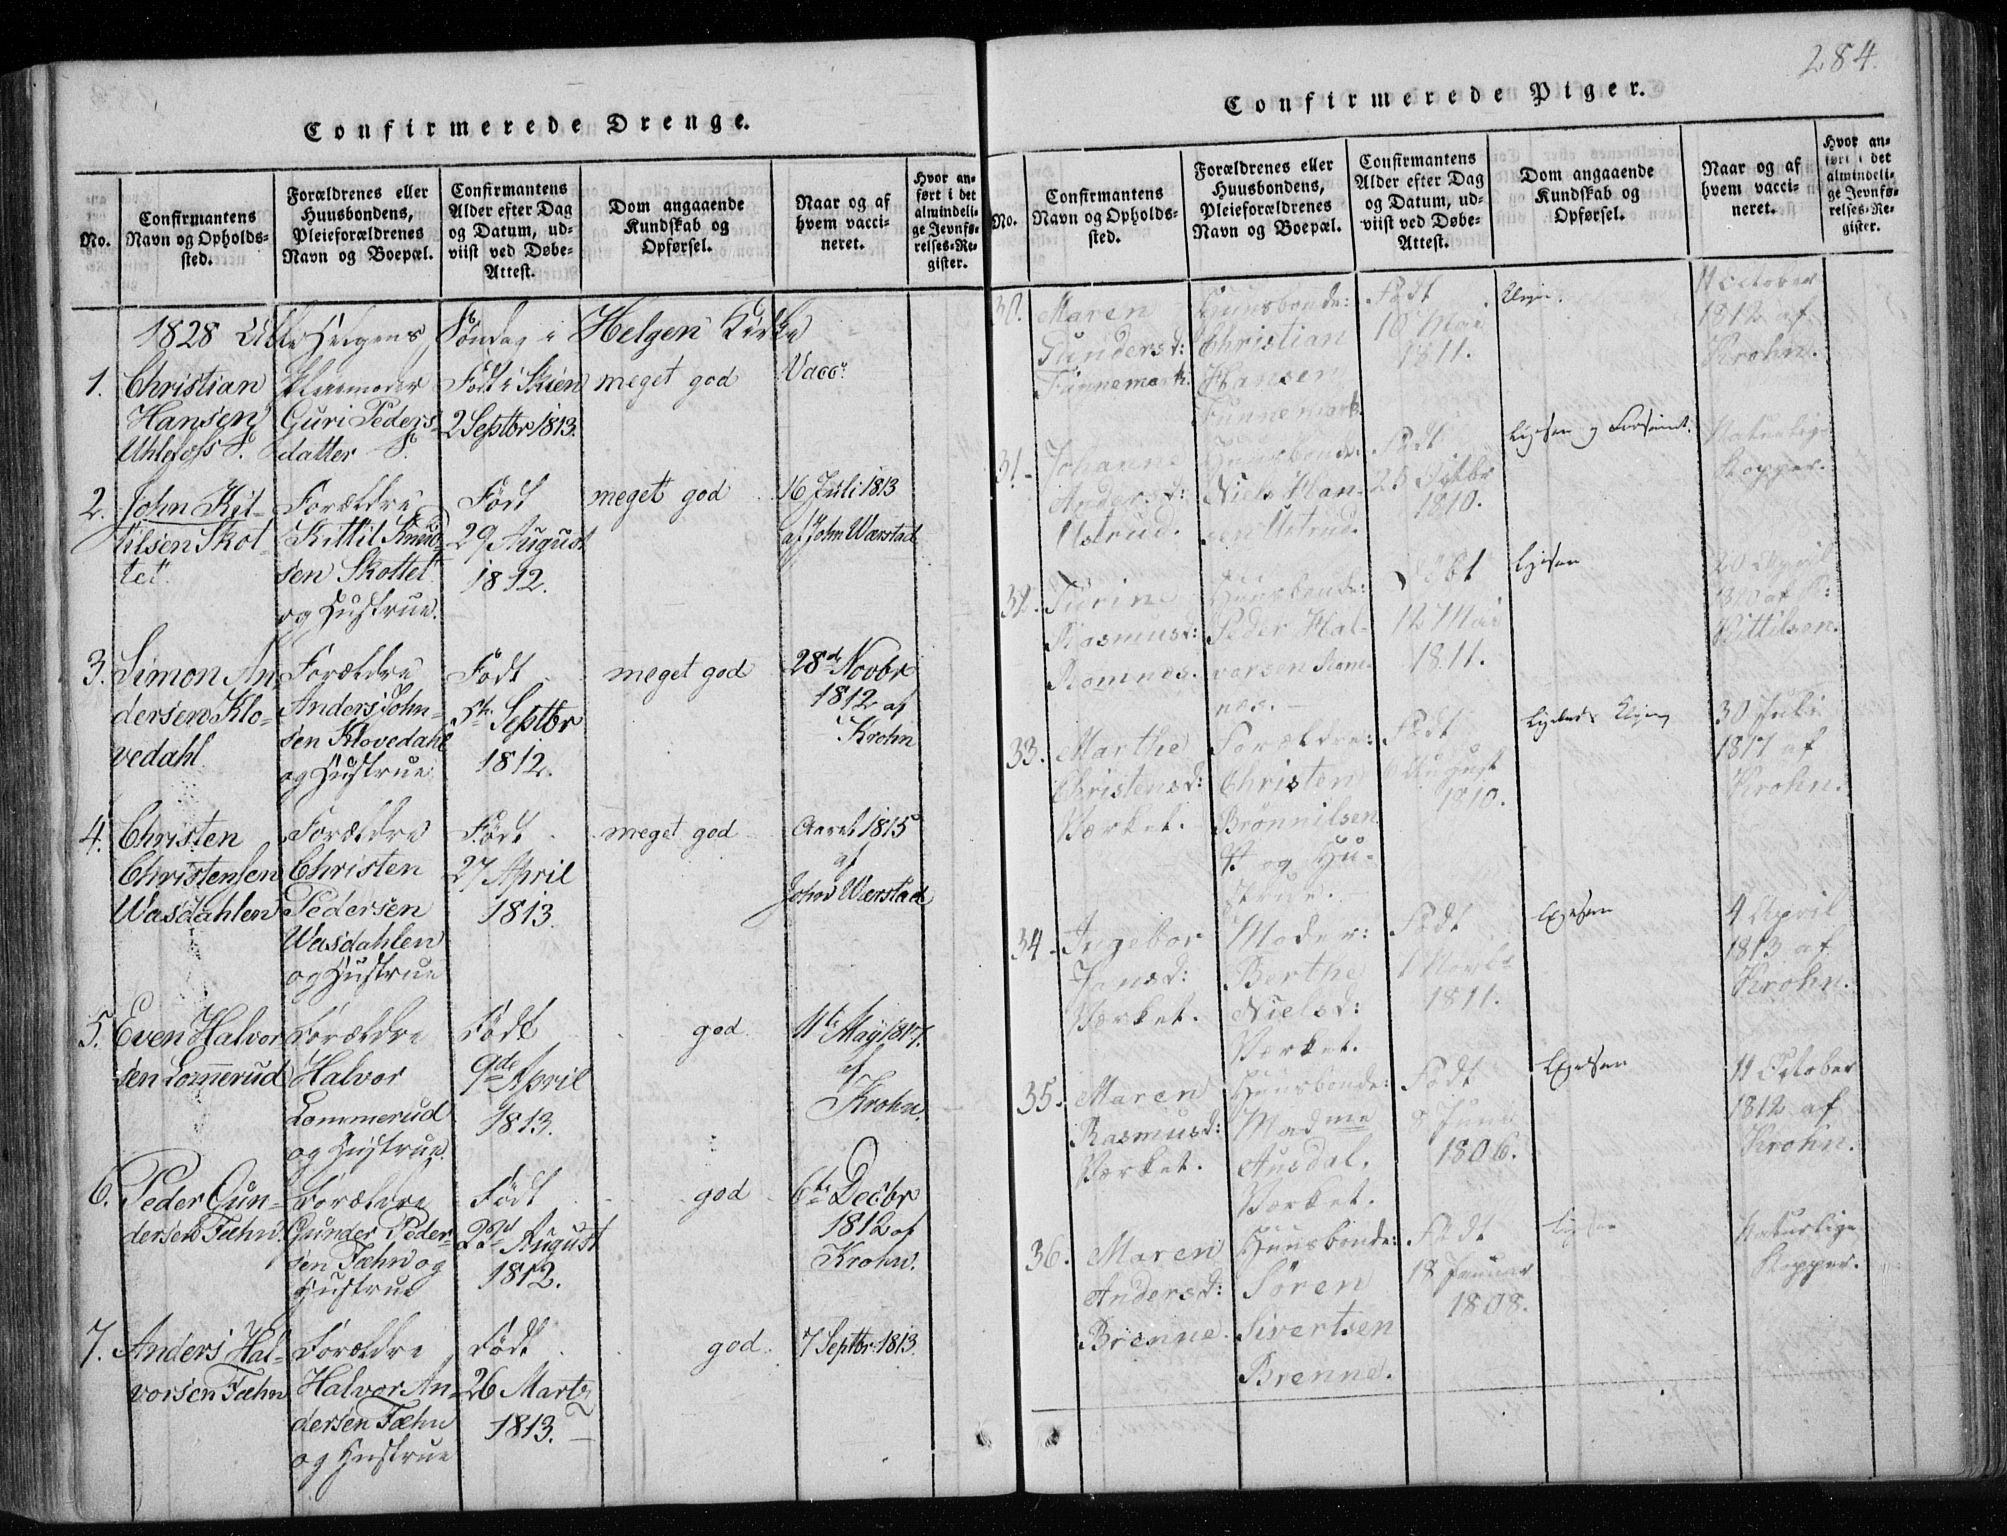 284.
Confirmerede Drenge.
No.
Confirmantens
Navn og Opholds-
sted.
Forældrenes eller
Huusbondens,
Pleieforældrenes
Navn og Boepæl.
Confirmantens
Alder efter Dag
og Datum, ud-
viist ved Døbe-
Attest.
Dom angaaende
Kundskab og
Opførsel.
Naar og af
hvem vacci-
neret.
Hvor an-
ført i det
almindeli-
ge Jevnfø-
relses-Re-
gister.
1828 Alle Helgens Søndag i Helgen Kirke
1.
Christian
Hansen
Uhlefoss
Pleiemoder
Guri Peders-
datter
Født i Skien
2 Septbr 1813.
meget god
Vacc.
2.
John Kit-
tilsen Skot-
tet
Forældre
Kittil Knud-
sen Skottet
og Hustrue.
Født
29 August
1812.
meget god
16 Juli 1813
af John Wærstad
3.
Simon An-
dersen Klo-
vedahl
Forældre
Anders John-
sen Klovedahl
og Hustrue
Født
5te Septbr
1812.
meget god
28d Novbr
1812 af
Krohn
4.
Christen
Christensen
Wasdahlen
Forældre
Christen
Pedersen
Wasdahlen
og Hustrue
Født
27 April
1813.
meget god
Aaret 1815
af
John Wærstad
5.
Even Halvor-
sen Lommerud
Forældre
Halvor
Lommerud
og Hustrue.
Født
9de April
1813.
god
11te May 1817.
af
Krohn.
6.
Peder Gun-
dersen Fæhn
Forældre
Gunder Peder-
sen Fæhn og
Hustrue
Født
22d August
1812.
god
6te Decbr
1812 af
Krohn.
7.
Anders Hal-
vorsen Fæhn
Forældre
Halvor An-
dersen Fæhn
og Hustrue
Født
26 Martz
1813.
god.
7 Septbr 1813
Confirmerede Piger.
No.
Confirmantens
Navn og Opholds-
sted.
Forældrenes eller
Huusbondens,
Pleieforældrenes
Navn og Boepæl.
Confirmantens
Alder efter Dag
og Datum, ud-
viist ved Døbe-
Attest.
Dom angaaende
Kundskab og
Opførsel.
Naar og af
hvem vacci-
neret.
Hvor an-
ført i det
almindeli-
ge Jevnfø-
relses-Re-
gister.
30.
Maren
Gundersd:
Funnemark.
Huusbonde:
Christian
Hansen
Funnemark.
Født
10 Mai
1811.
11 October
1812 af
Krohn.
31.
Johanne
Andersd:
Ustrud.
Huusbonde:
Niels Han-
sen Ustrud.
Født
25 Octbr
1810.
Naturlige
Kopper.
32.
Turine
Rasmusd:
Romnes.
Huusbonde:
Peder Hal-
vorsen Rom-
nes.
Født
12 Mai
1811.
20 April
Kittilsen.
33.
Marthe
Christensd:
Værket.
Forældre:
Christen
Brønnilsen
og Hu-
strue.
Født
6 August
1810.
30 Juli
1817 af
Krohn.
34.
Ingebor
Jansd:
Værket.
Moder:
Berthe
Nielsd:
Værket.
Født
1 Novbr
1811.
4 April
1813 af
Krohn.
35.
Maren
Rasmusd:
Værket.
Huusbonde:
Madme
Ausdal,
Værket.
Født
8 Juni
1806.
11 October
1812 af
Krohn.
36.
Maren
Andersd:
Brenne.
Huusbonde:
Søren
Sivertsen
Brenne.
Født
18 Januar
1808.
Naturlige
Kopper.